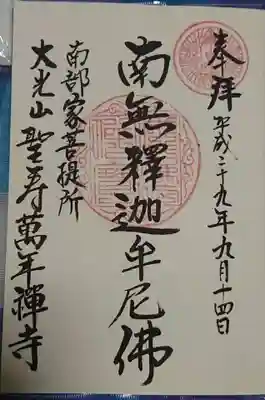 奉拝 平成二十九年九月十四日
南無釋迦牟尼佛
南部家菩提所
大光山聖寿萬年禅寺